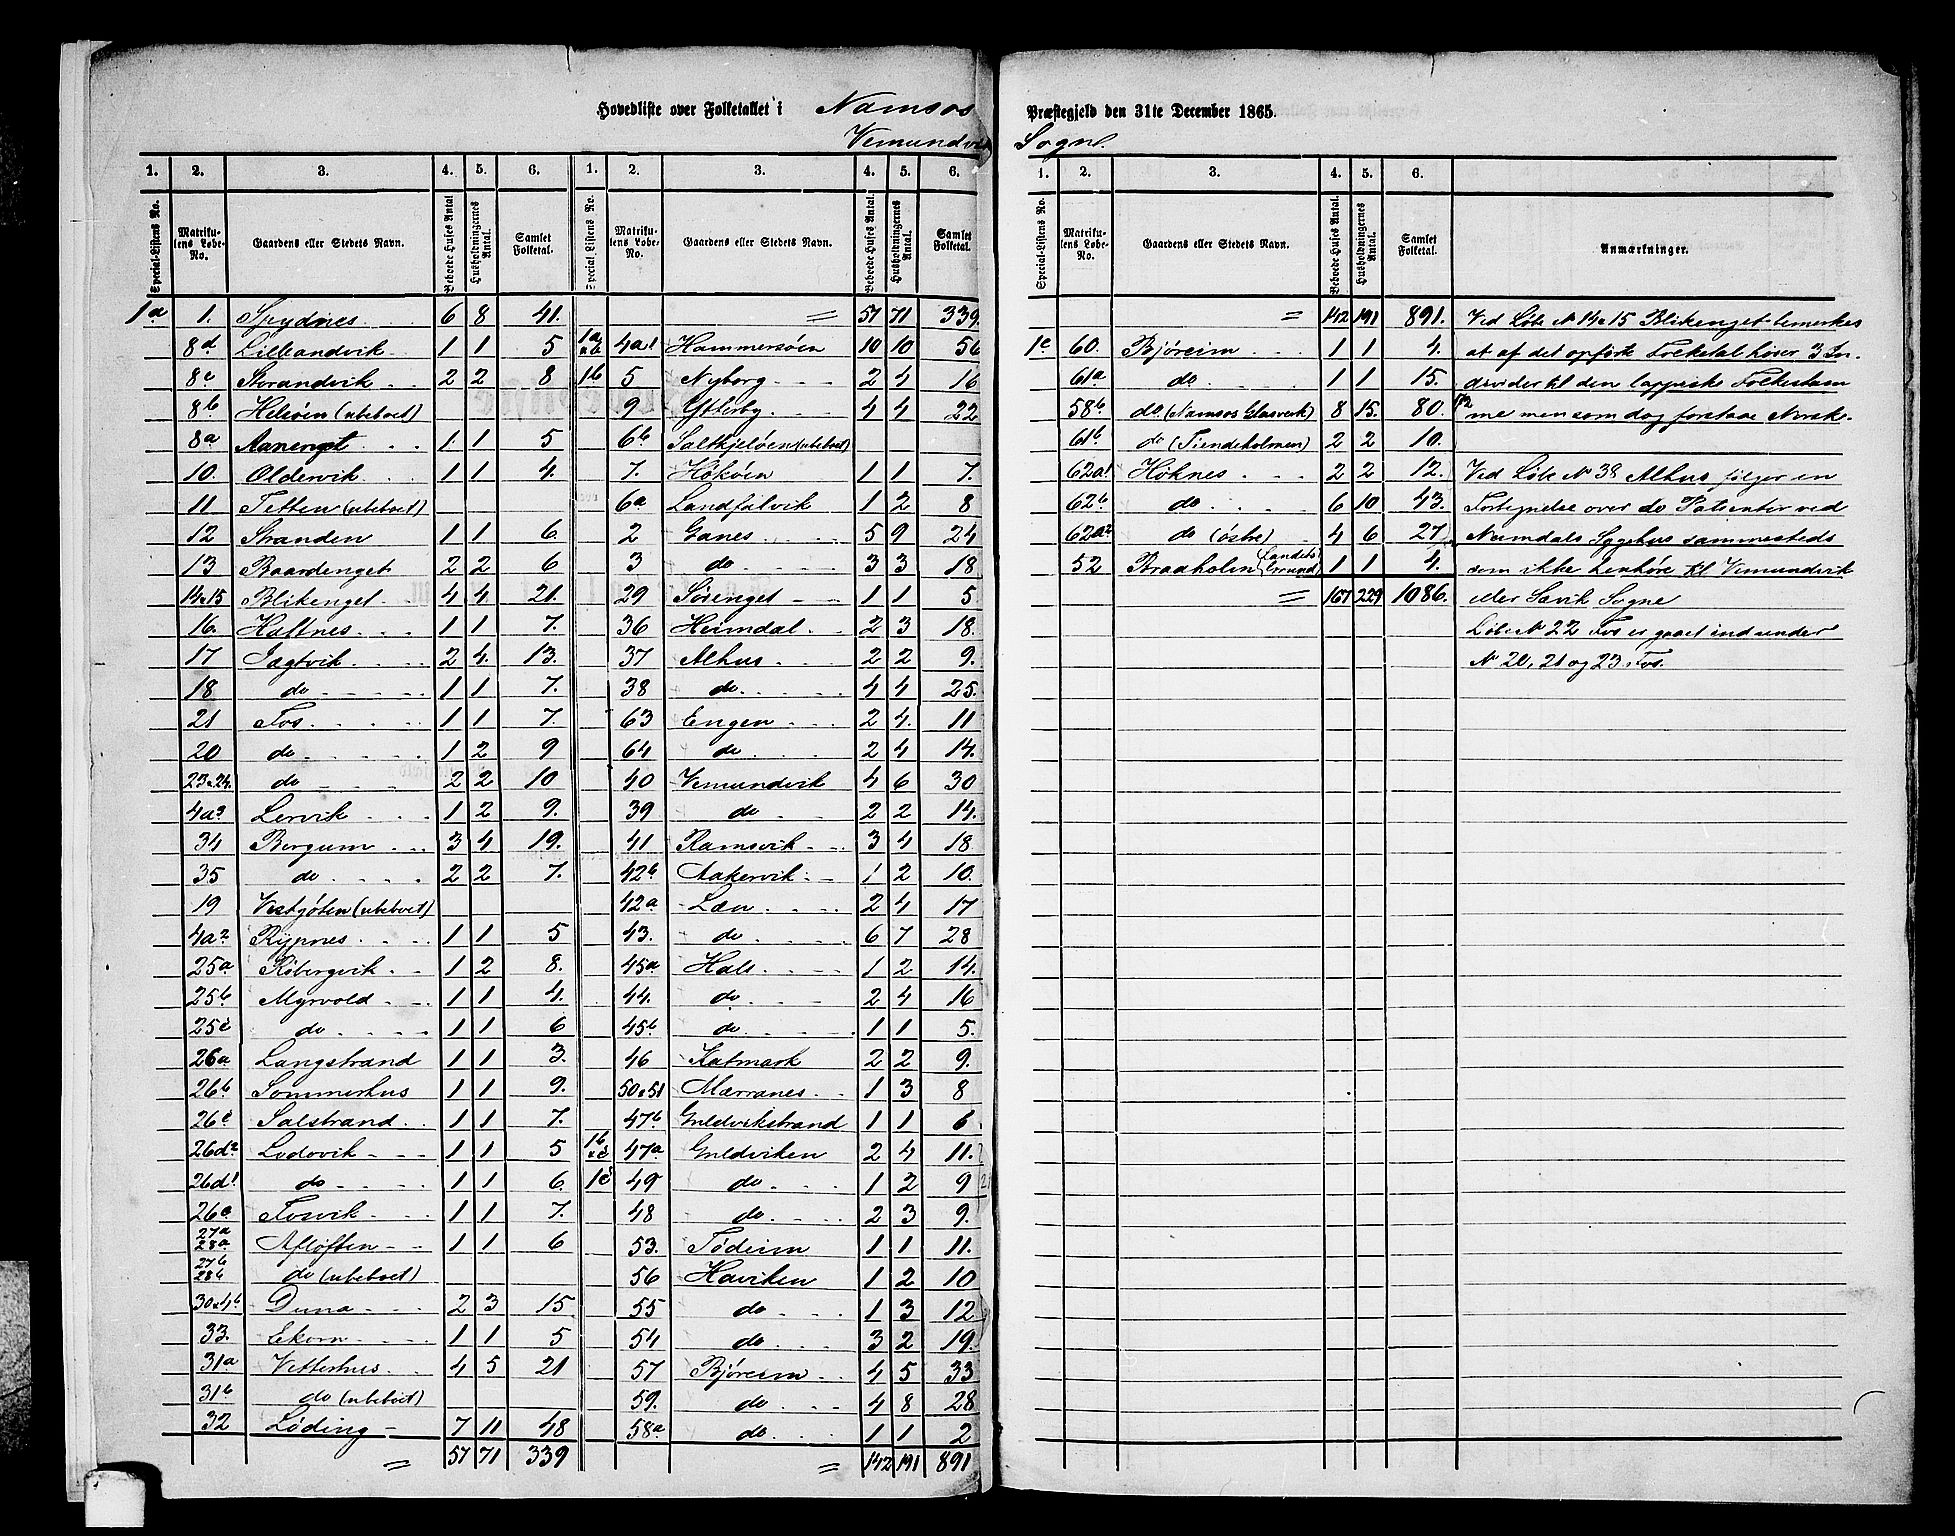 Hovedliste over Folketallet i Namsos Præstegjeld den 31te December 1865.
Vemundvik Sogn.
1. 2. 3. 4. 5. 6. 1. 2. 3. 4. 5. 6.
Special-Listens No. Matrikulens Løbe-No. Gaardens eller Stedets Navn. Beboede Huses Antal. Husholdningernes Antal. Samlet Folketal. Special-Listens No. Matrikulens Løbe-No. Gaardens eller Stedets Navn. Beboede Huses Antal. Husholdningernes Antal. Samlet Folketal.
1a 1. Spydnes 6 8 41. = 57 71 339.
8d Lilleandvik 1 1 5 1a & b 4a1 Hammersøen 10 10 56
8c Storandvik 2 2 8 1b 5 Nyborg 2 4 16
8b Helsøen (ubeboet) 9 Ytterby 4 4 22
8a Aanenget 1 1 5 6b Saltkjeløen (ubeboet)
10. Oldervik 1 1 4. 7. Hokøen 1 1 7.
11 Tetten (ubeboet) 6a Landfalvik 1 2 8
12 Stranden 1 1 6. 2 Ganes 5 9 24
13 Baardenget 2 2 6 3 do 3 3 18
14 & 15 Blikenget 4 4 21. 29 Sørenget 1 1 5
16. Kaltnes 1 1 7. 36 Heimdal 2 3 18.
17 Jagtvik 2 4. 13. 37 Alhus 2 2 9.
18 do 1 1 7. 38 do 4 4 25.
21 Fos 1 1 7. 63 Engen 2 4. 11
20 do 1 2 9 64 do 2 4 14.
23 & 24. do 2 2 10 40 Vemundvik 4 6 30
4a3 Lervik 1 2 9. 39 do 2 2 14.
34 Bergum 3 4 19. 41 Ramsvik 3 4 18
35 do 2 2 7. 42b Aakervik 1 2 10.
19 Vestgøten (ubeboet) 42a Læn 2 4 17
4a2 Rypnes 1 1 5 43. do 6 7 28
25a Røbergvik 1 2 8. 45a Hals 1 2 14.
25b Myrvold 1 1 4. 44. do 2 4 16
25c do 1 1 6 45b do 1 1 5.
26a Langstrand 1 1 3. 46 Katmark 2 2 9.
26b Sommerhus 1 1 9. 50 & 51 Mærranes 1 3 8
26c Salstrand 1 1 7. 47b Guldvikstrand 1 1 6
26d2 Lodovik 1 1 5 1b & c 47a Guldviken 2 4 11.
26d1 do 1 1 6. 1c 49 do 1 2 9
26e Fosvik 1 1 7. 48 do 2 3 9.
27a 28a Afløften 1 1 6 53. Tødeim 1 1 11.
27b 28b do (ubeboet) 56 Haviken 1 2 10
30 & 4b Duna 2 3 15 55 do 1 3 12
33. Ekorn 1 1 5 54 do 3 2 19.
31a Vetterhus 4 5 21 57 Bjøreim 4 5 33
31b do (ubeboet) 59. do 4 8 28
32 Løding 7 11 48 58a do 1 1 2
= 57 71 339 = 142 191 891
1. 2. 3. 4. 5. 6.
Special-Listens No. Matrikulens Løbe-No. Gaardens eller Stedets Navn. Beboede Huses Antal. Husholdningernes Antal. Samlet Folketal. Anmærkninger.
= 142 191 891. Ved Løbe N 14 & 15 Blikenget bemerkes
1c 60. Bjøreim 1 1 4. at af det opførte Folketal hører 3 In-
61a do 1 1 15. divider til den lappiske Folkestam
58b do (Namsos Glasverk) 8 15. 80. me men som dog forstaae Norsk.
61b do (Tiendeholmen) 2 2 10.
62a1 Høknes 2 2 12. Ved Løbe N 38 Alhus følger en
62b do 6 10 43. Fortegnelse over de Patienter ved
62a2 do (østre) 4 6 27 Namdals Sygehus sammesteds
52 Braaholm (Landets Grund) 1 1 4. som ikke henhøre til Vemundvik
= 167 229 1086. eller Sævik Sogne
Løbe N 22 Fos er gaaet ind under
N 20, 21 og 23 Fos.